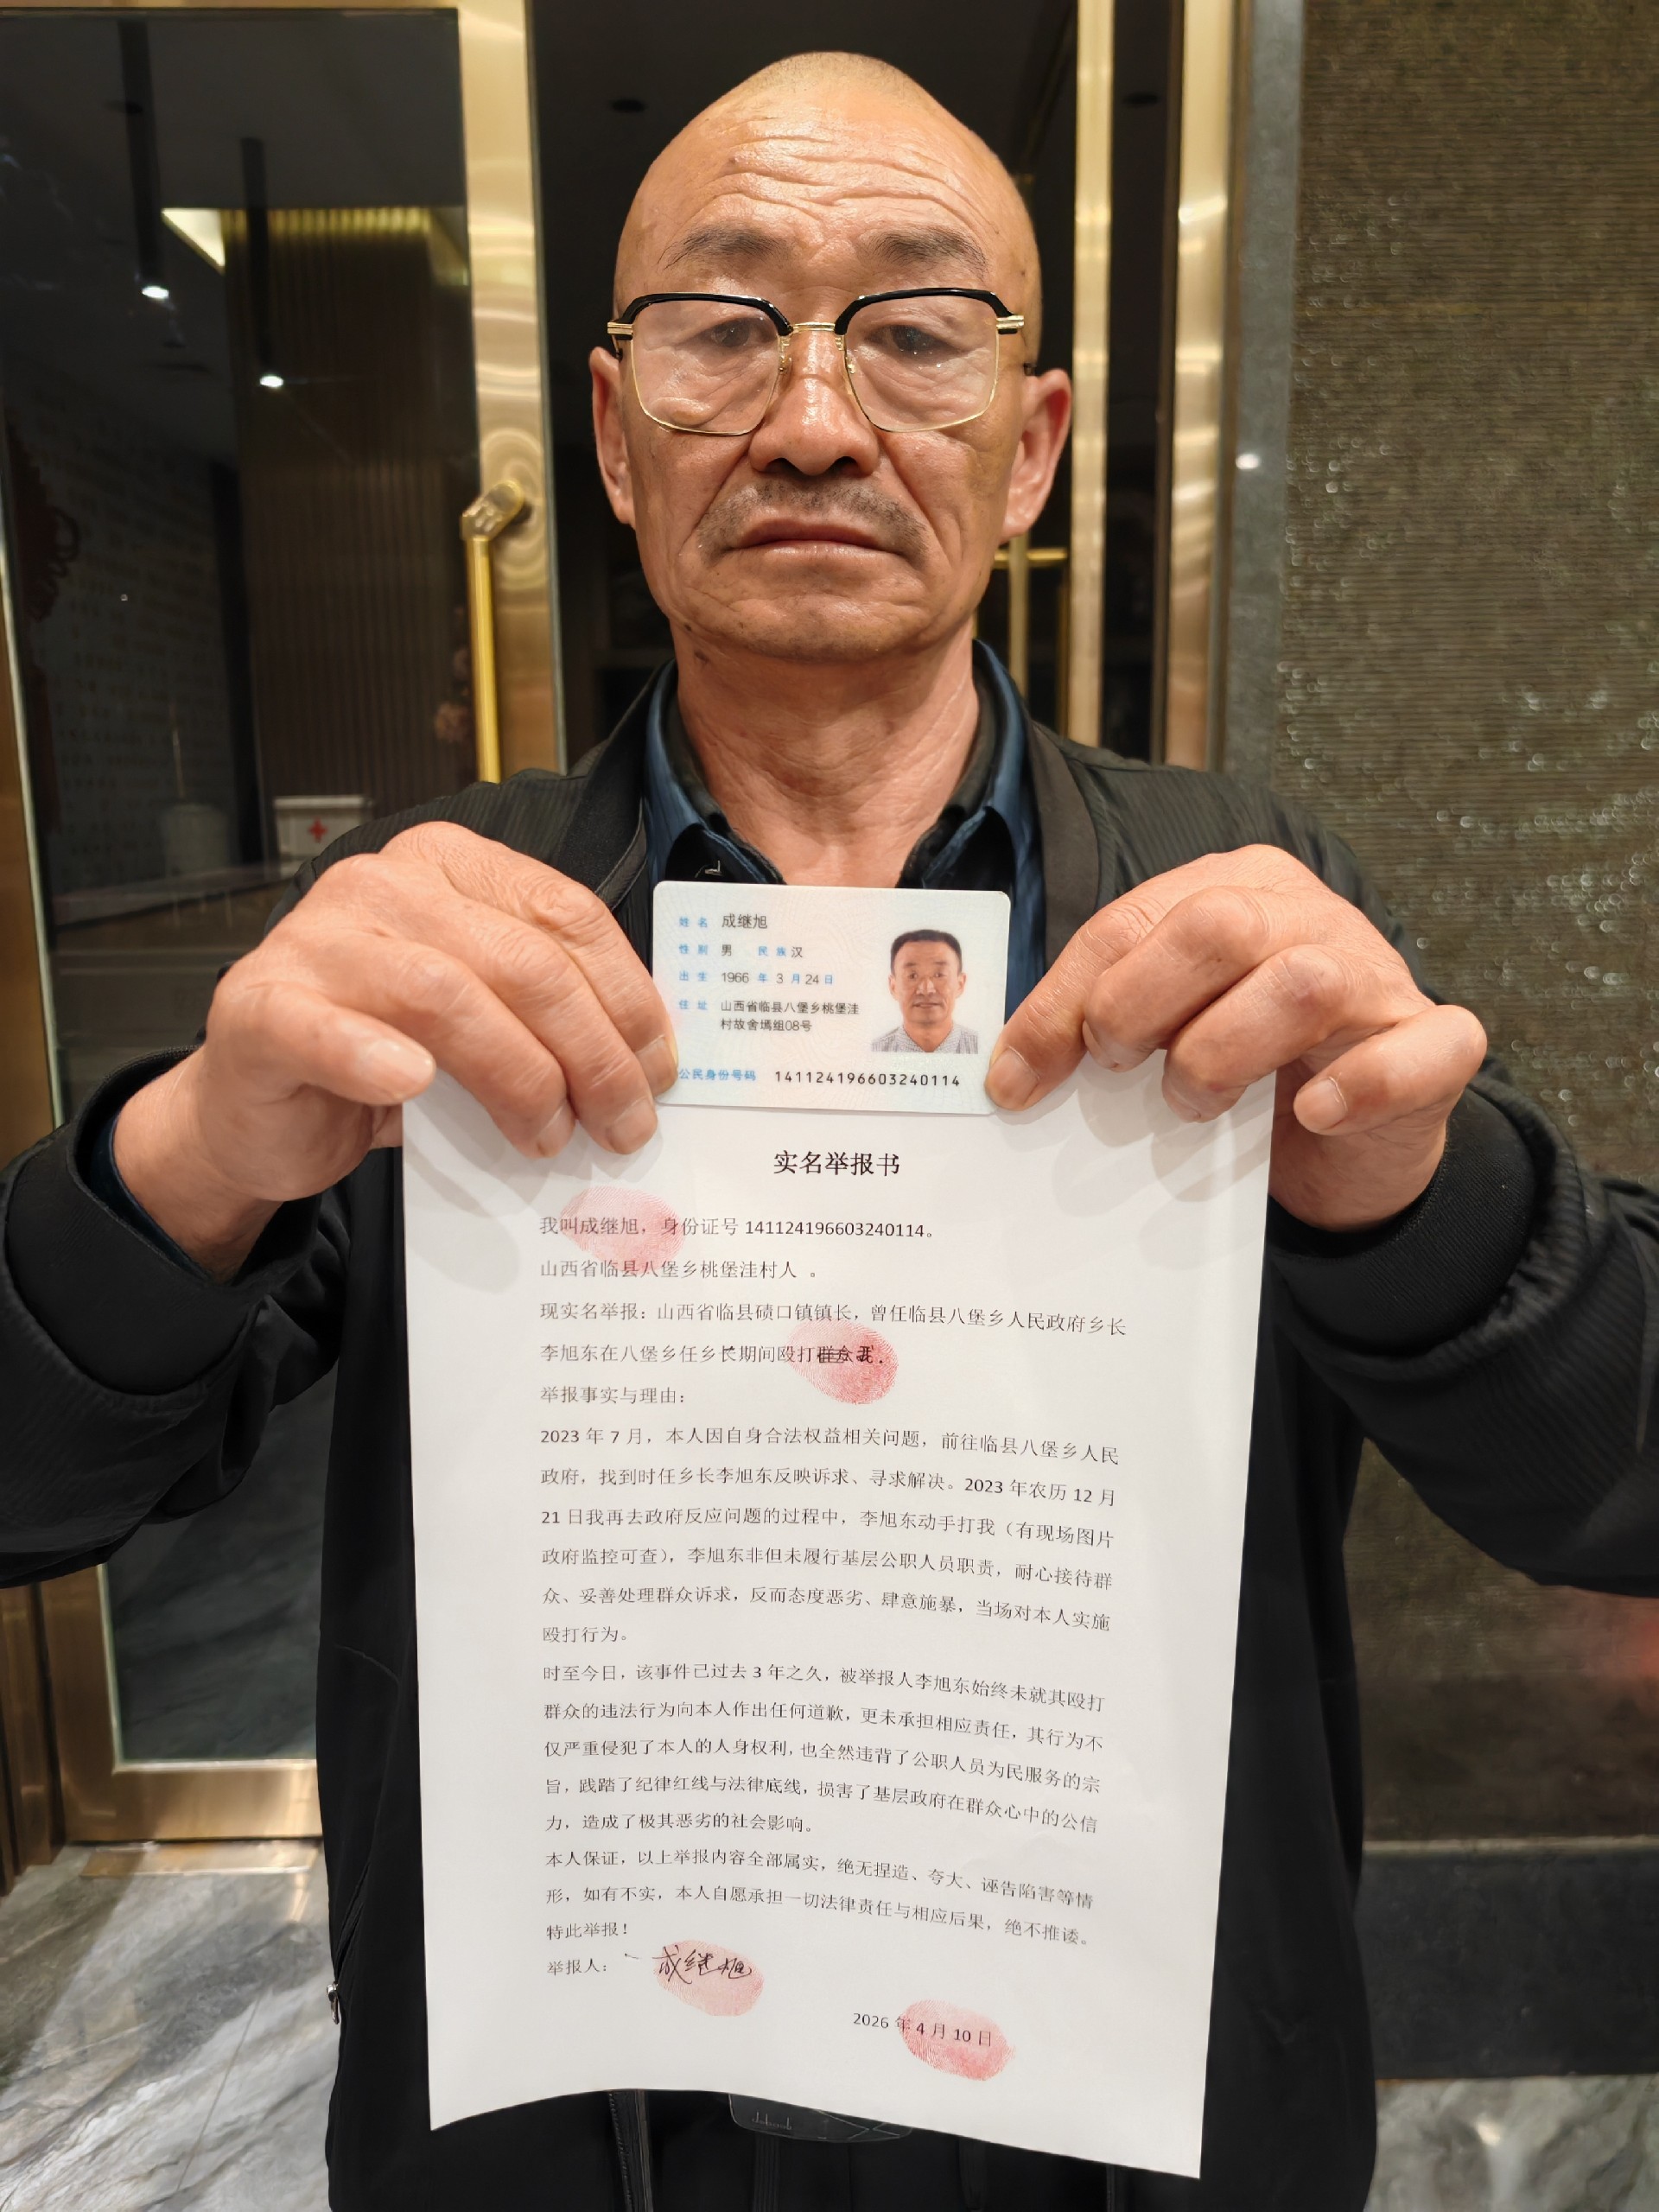 姓名 成继旭
性别 男 民族 汉
出生 1966 年 3 月 24 日
住址 山西省临县八堡乡桃堡洼
村故舍墕组08号
公民身份号码 141124196603240114
实名举报书
我叫成继旭，身份证号 141124196603240114。
山西省临县八堡乡桃堡洼村人 。
现实名举报：山西省临县碛口镇镇长，曾任临县八堡乡人民政府乡长
李旭东在八堡乡任乡长期间殴打群众我.
举报事实与理由：
2023 年 7 月，本人因自身合法权益相关问题，前往临县八堡乡人民
政府，找到时任乡长李旭东反映诉求、寻求解决。2023 年农历 12 月
21 日我再去政府反应问题的过程中，李旭东动手打我（有现场图片
政府监控可查），李旭东非但未履行基层公职人员职责，耐心接待群
众、妥善处理群众诉求，反而态度恶劣、肆意施暴，当场对本人实施
殴打行为。
时至今日，该事件已过去 3 年之久，被举报人李旭东始终未就其殴打
群众的违法行为向本人作出任何道歉，更未承担相应责任，其行为不
仅严重侵犯了本人的人身权利，也全然违背了公职人员为民服务的宗
旨，践踏了纪律红线与法律底线，损害了基层政府在群众心中的公信
力，造成了极其恶劣的社会影响。
本人保证，以上举报内容全部属实，绝无捏造、夸大、诬告陷害等情
形，如有不实，本人自愿承担一切法律责任与相应后果，绝不推诿。
特此举报！
举报人： 成继旭
2026 年 4 月 10 日